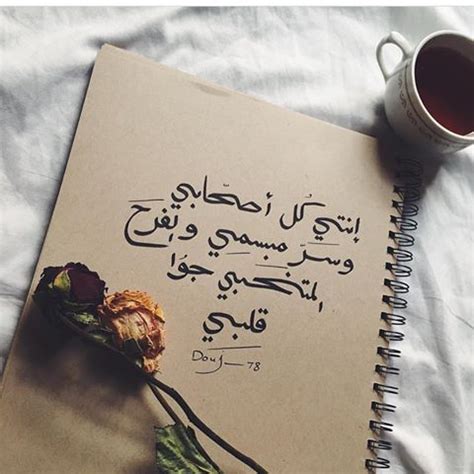 إنتي كُل أصحّابي
وسرّ مبسمي والفرحَ
المتخَبي جوّا
قلبي
Douf_78